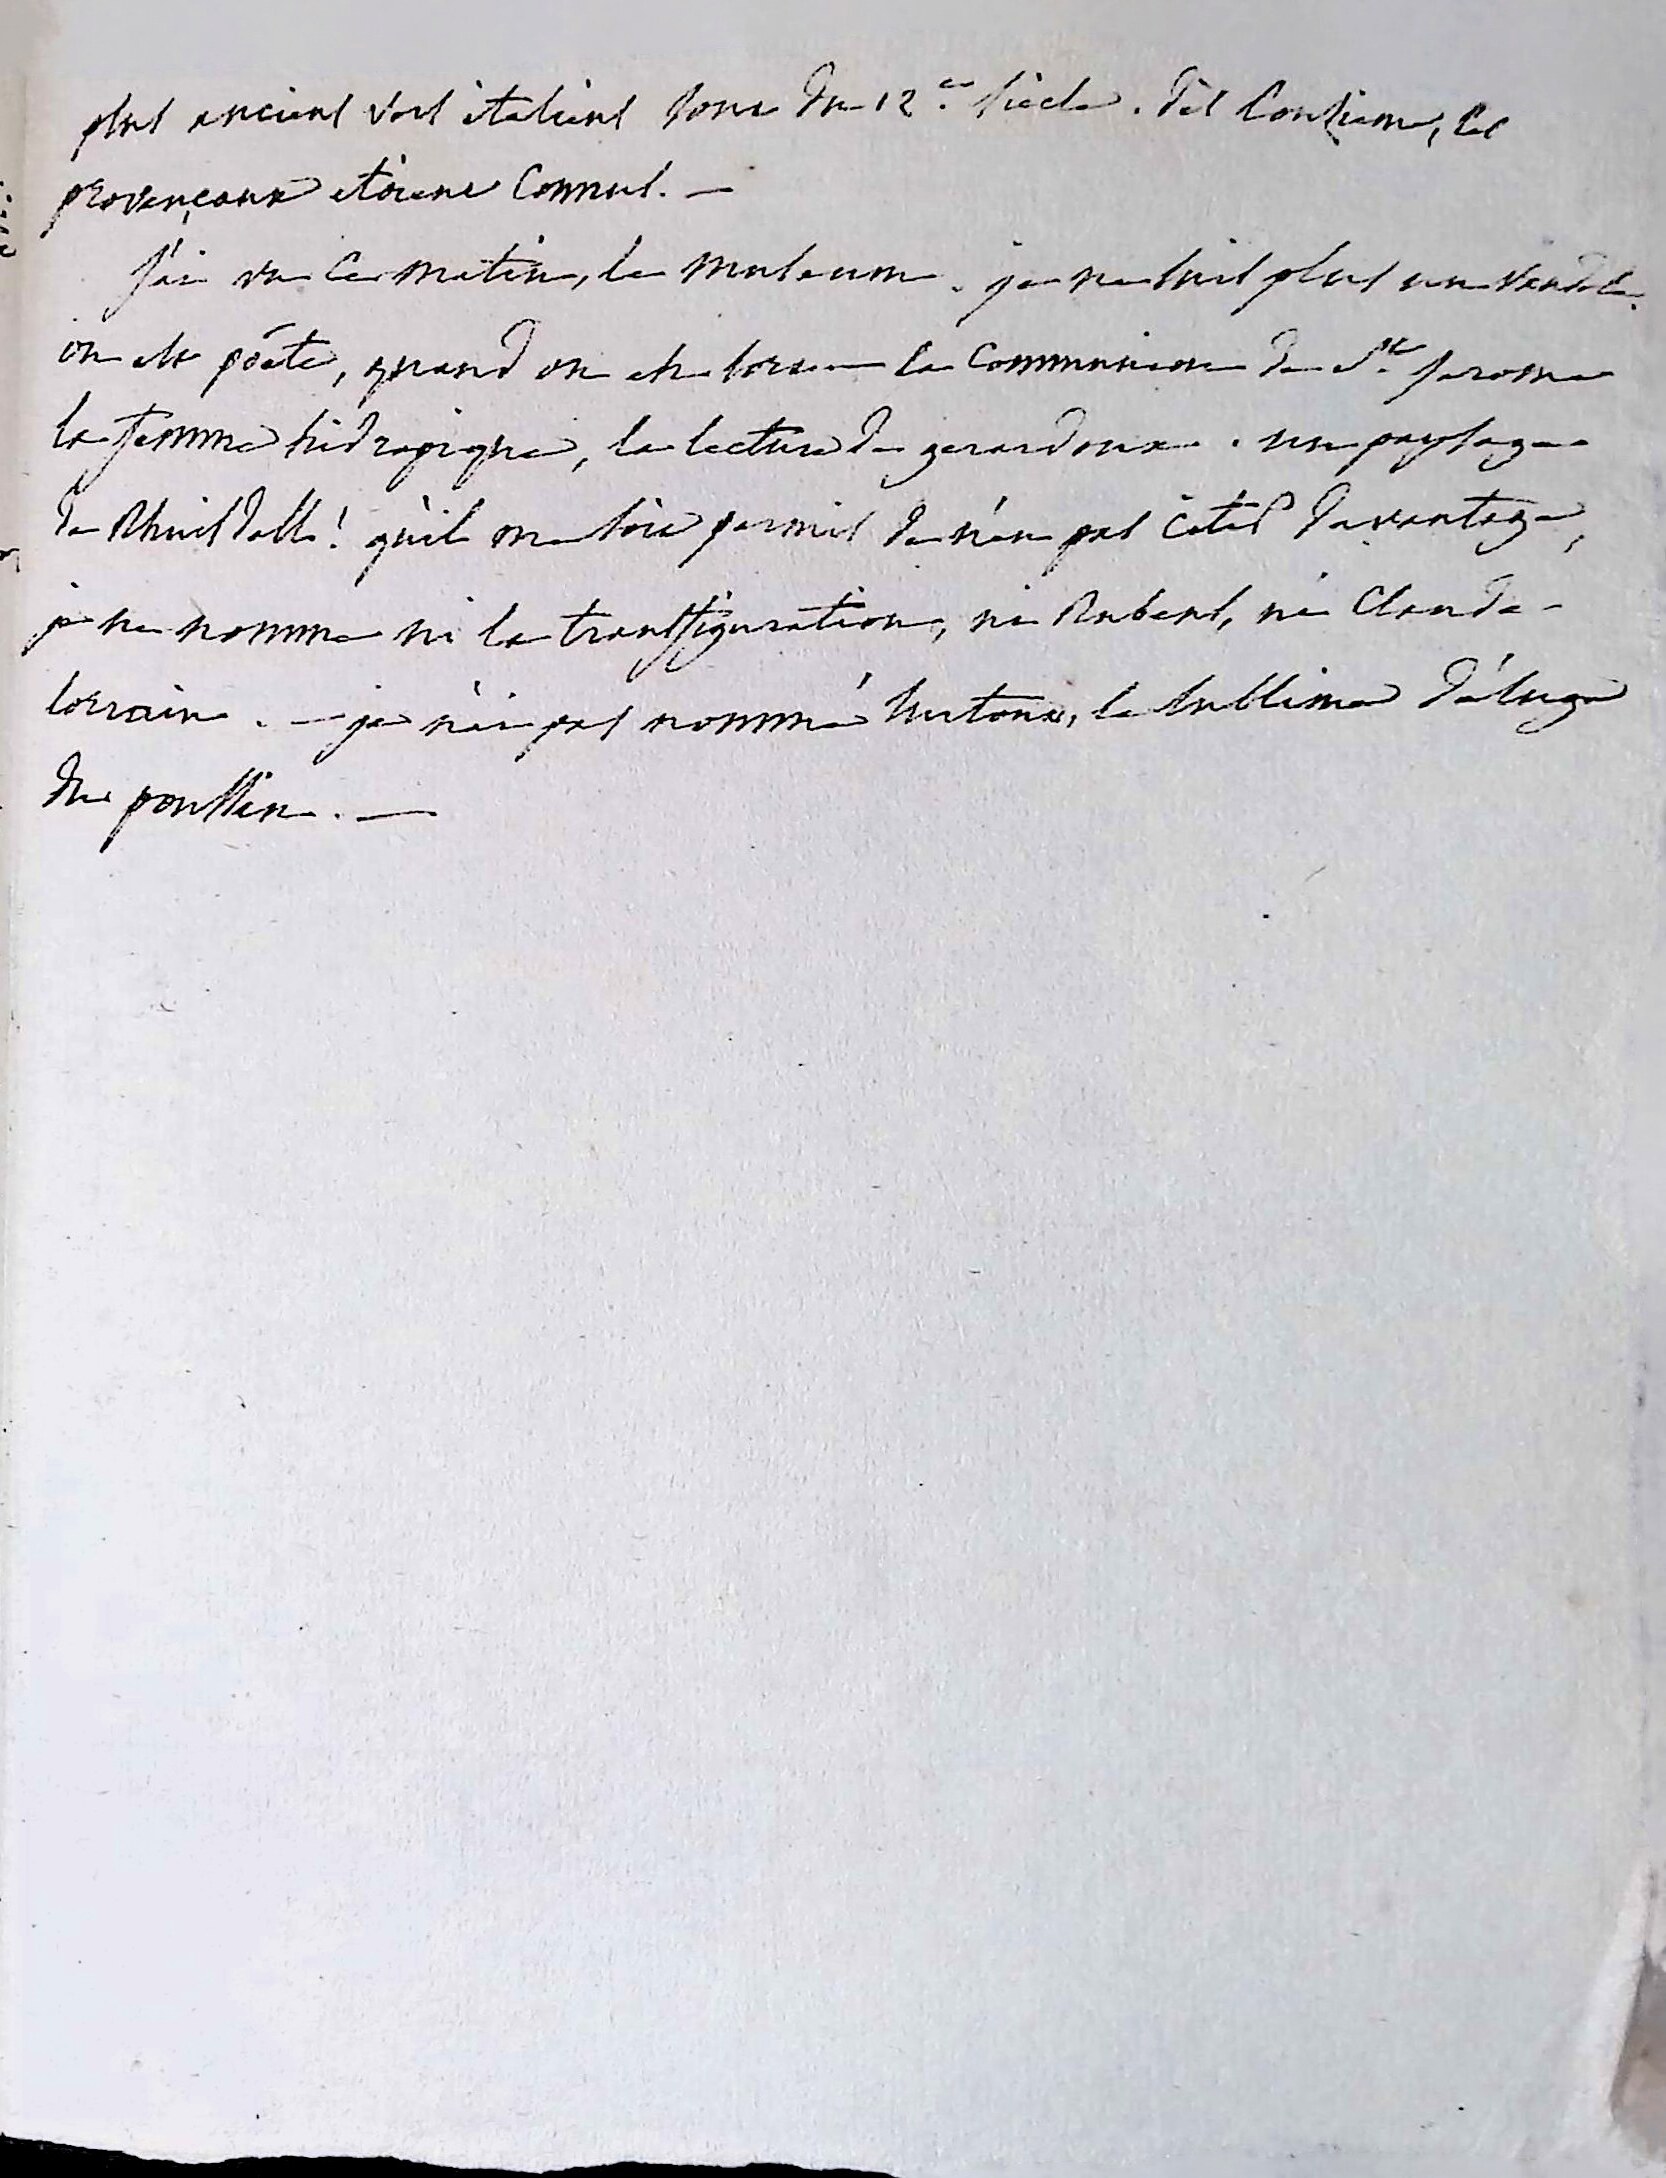 plus anciens vers italiens sont du 12.e siècle. dès l'onzieme, les
provençaux etoient connus. —
J'ai vu ce matin, le museum. je ne suis plus un vandale.
on est poéte, quand on est la communion de St. Jerome
la femme hidropique, la lecture de gerardoux. un paysage
de Rhuisdall! qu'il me soit permis de n'en pas citer davantage,
je ne nomme ni la transfiguration, ni Rubens, ni Claude-
lorrain. — je n'ai pas nommé surtout, le sublime déluge
du poussin. —